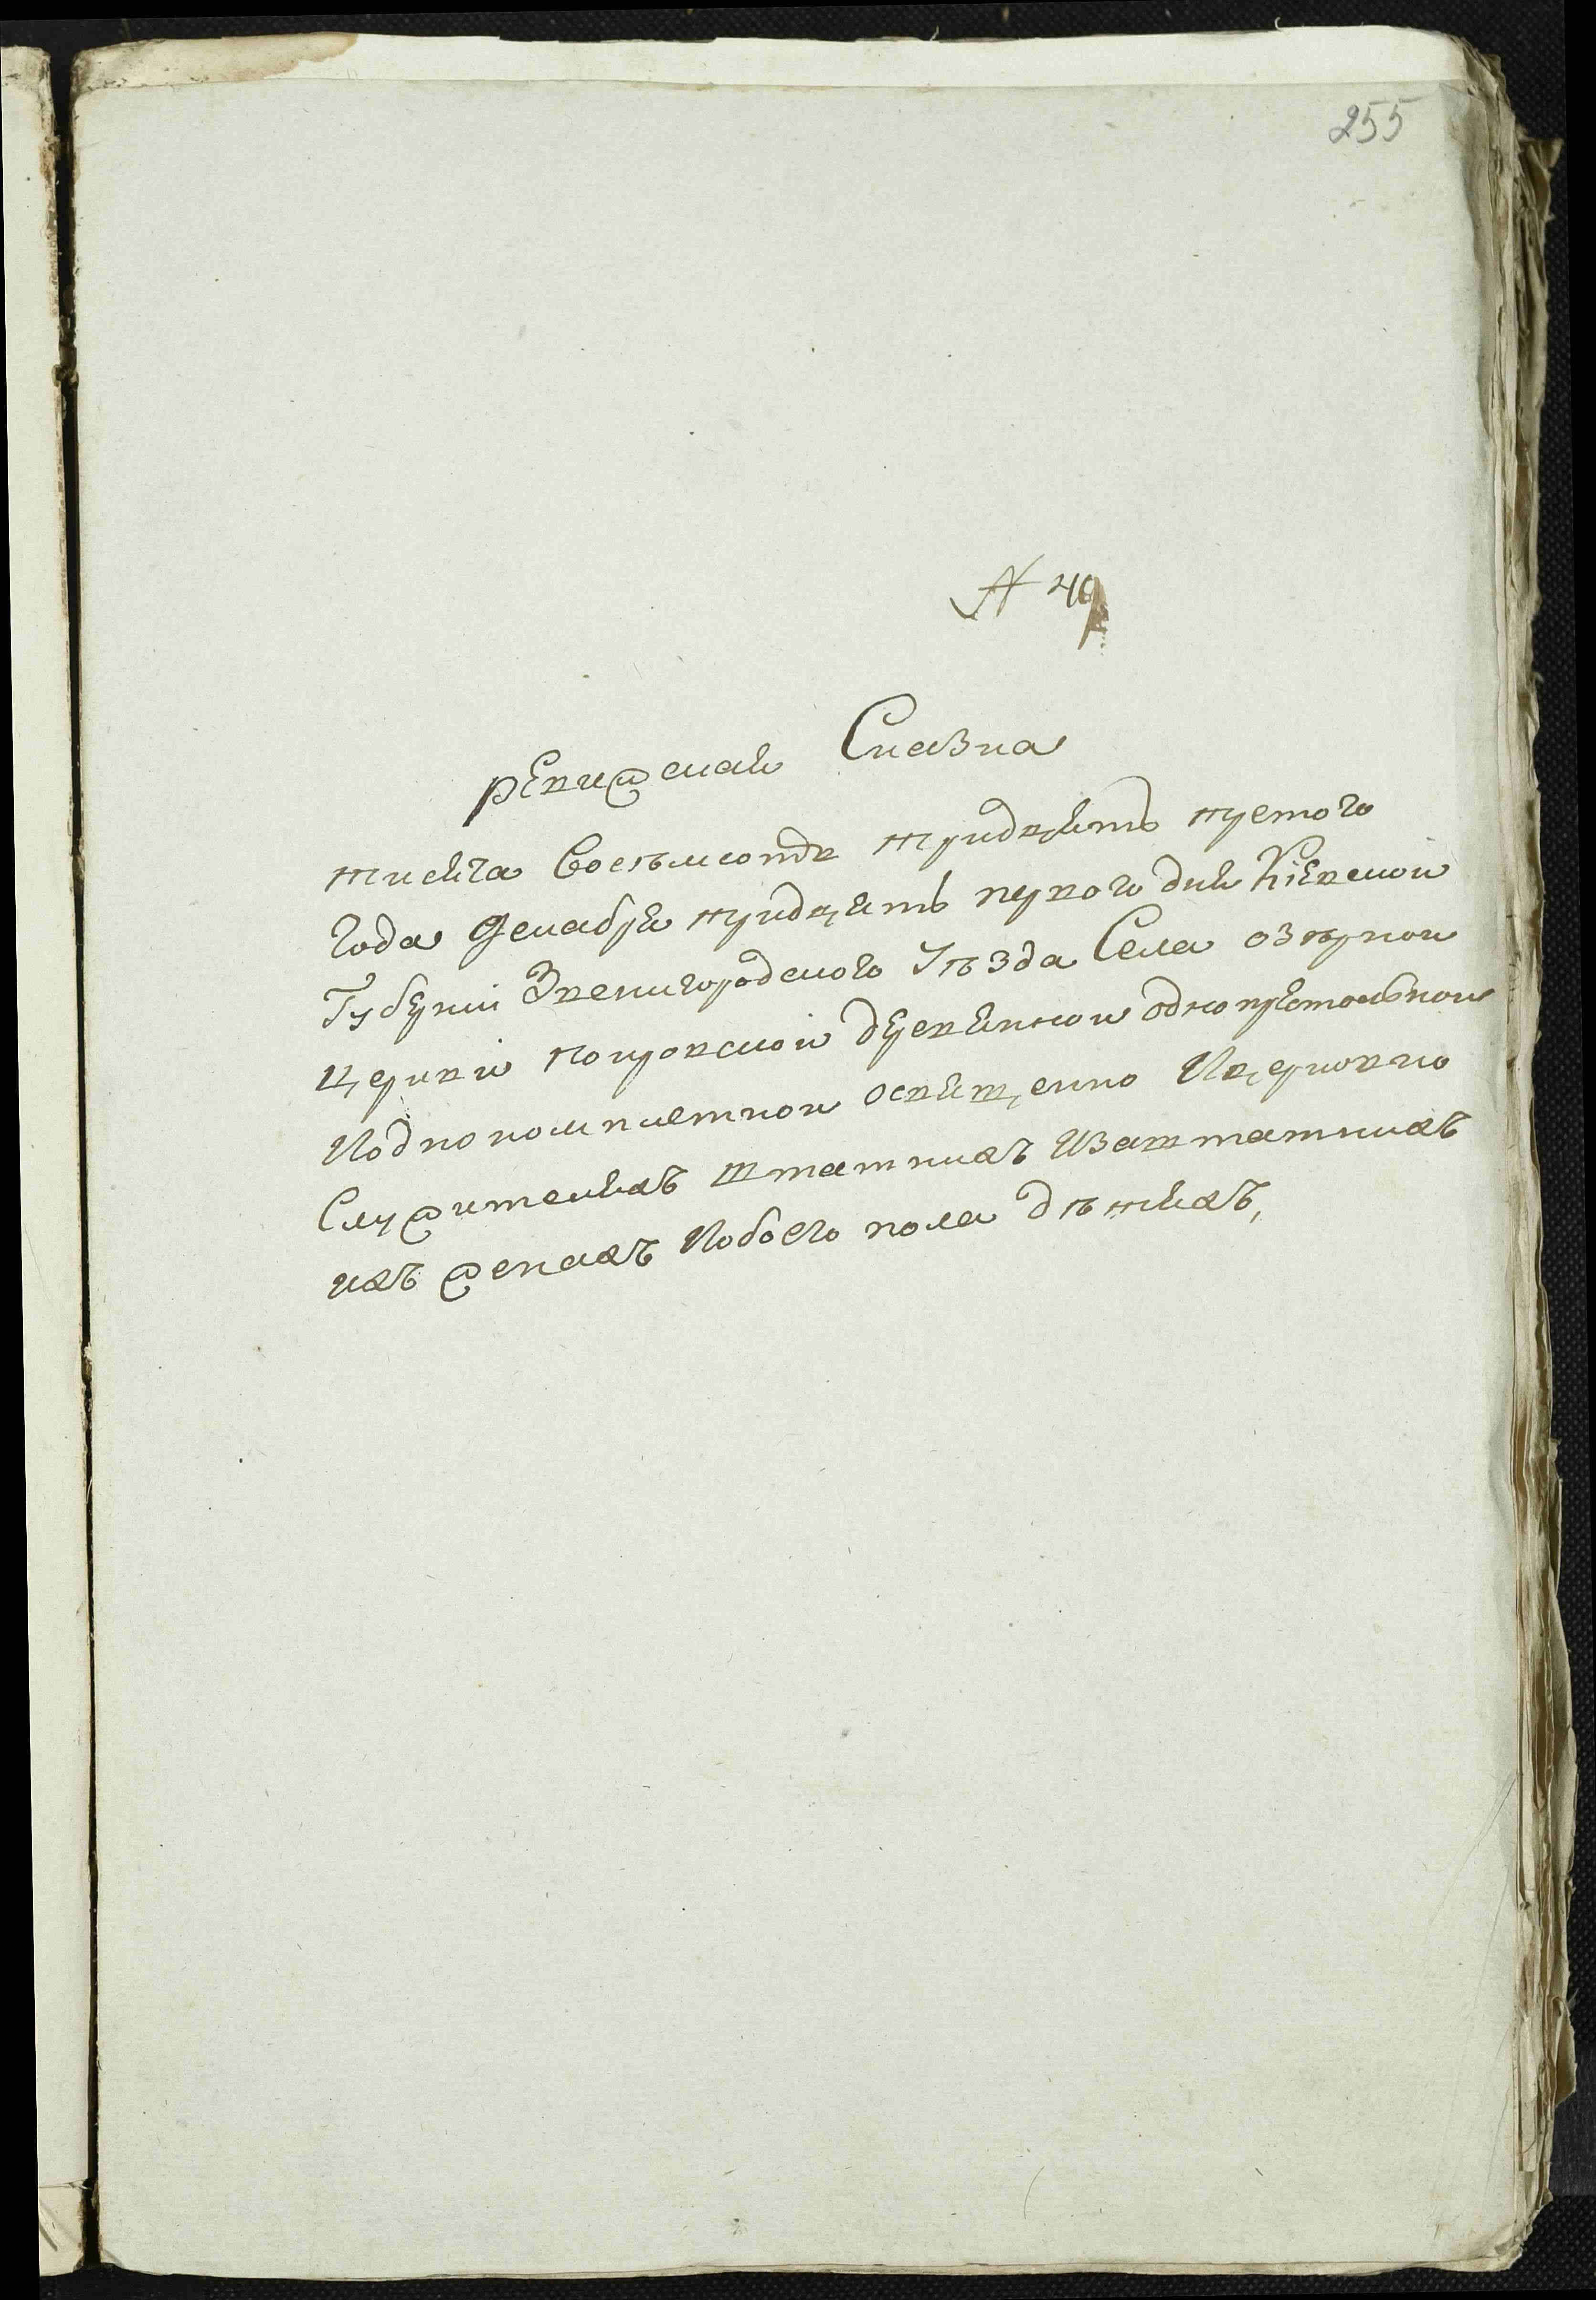 255
№ 49
ревижская Сказка
тисяча восѣмсотъ тридцять третого
года декабря тридцять первого дня Кіевской
Губерніи Звенигородского Уѣзда Села озѣрной
церкви покровской деревяной однопрестольной
И однокомплетной освященно И церковно
Служителяхъ штатнихъ И заштатнихъ
ихъ женахъ И обоего пола дѣтяхъ,